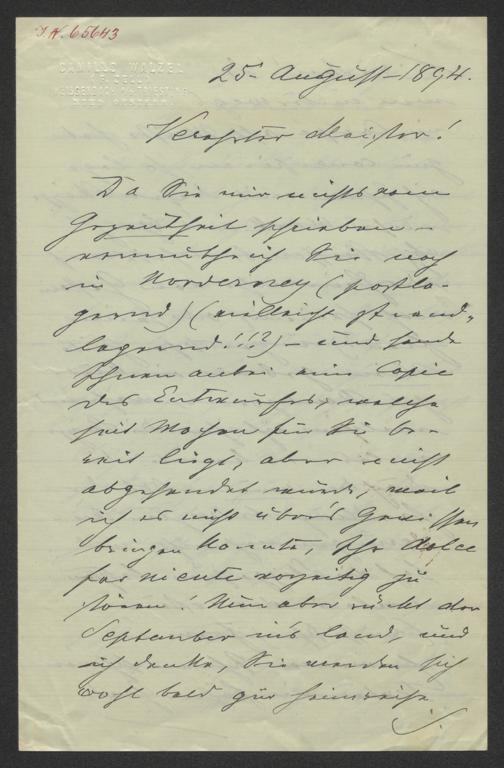 I.N. 65643
CAMILLO WALZEL
(F. ZELL)
25. August 1894.
Verehrter Meister!
Da Sie mir nichts vom
Gegentheil schrieben –
vermuthe ich Sie noch
in Norderney (postla-
gernd) (vielleicht strand-
lagernd!!!?) – und sende
Ihnen anbei eine Copie
des Entwurfes, welche
seit Wochen für Sie be-
reit liegt, aber nicht
abgesendet wurde, weil
ich es nicht über's Gewissen
bringen konnte, Ihr dolce
far niente vorzeitig zu
stören! Nun aber rückt der
September in's Land, und
ich denke, Sie werden sich
wohl bald zur Heimreise